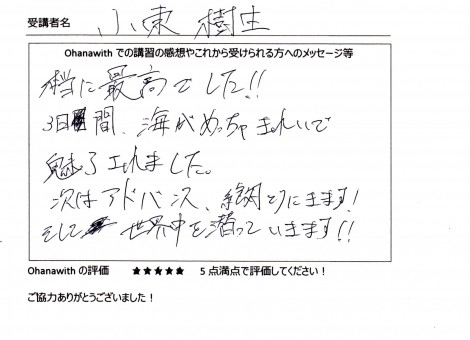 受講者名 小東 樹生
Ohanawith での講習の感想やこれから受けられる方へのメッセージ等
本当に最高でした!!
3日間、海がめっちゃきれいで
魅了されました。
次はアドバンス、絶対とりにきます!
そして世界中を潜っていきます!!
Ohanawith の評価 ★★★★★ 5点満点で評価してください！
ご協力ありがとうございました！